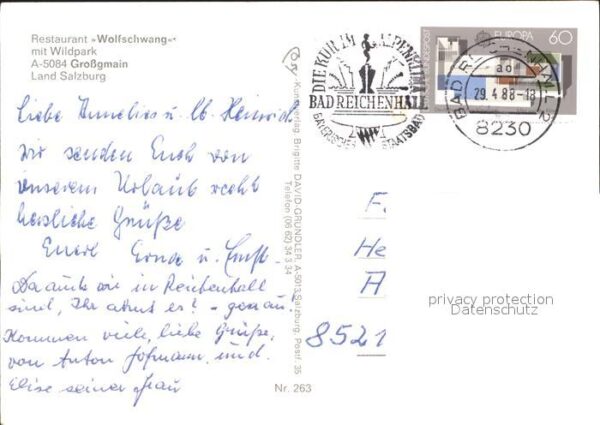 Restaurant »Wolfschwang«
mit Wildpark
A-5084 Großgmain
Land Salzburg
Liebe Annelies u. lb. Heinrich
wir senden Euch von
unserem Urlaub recht
herzliche Grüße
Eure Erna u. Ernst
Da auch wir in Reichenhall
sind, Ihr ahnt es! - genau!
Kommen viele, liebe Grüße,
von Anton Hofmann, und
Elise seiner Frau
Kunstverlag Brigitte DAVID-GRÜNDLER, A-5013 Salzburg, Postf. 35
Telefon (06 62) 34 3 34
Nr. 263
DIE KUR IM ALPENKLIMA
BAD REICHENHALL
BAYERISCHES STAATSBAD
EUROPA 60
BUNDESPOST
BAD REICHENHALL 2
ao
29.4.88-18
8230
F.
He
A
8521
privacy protection
Datenschutz